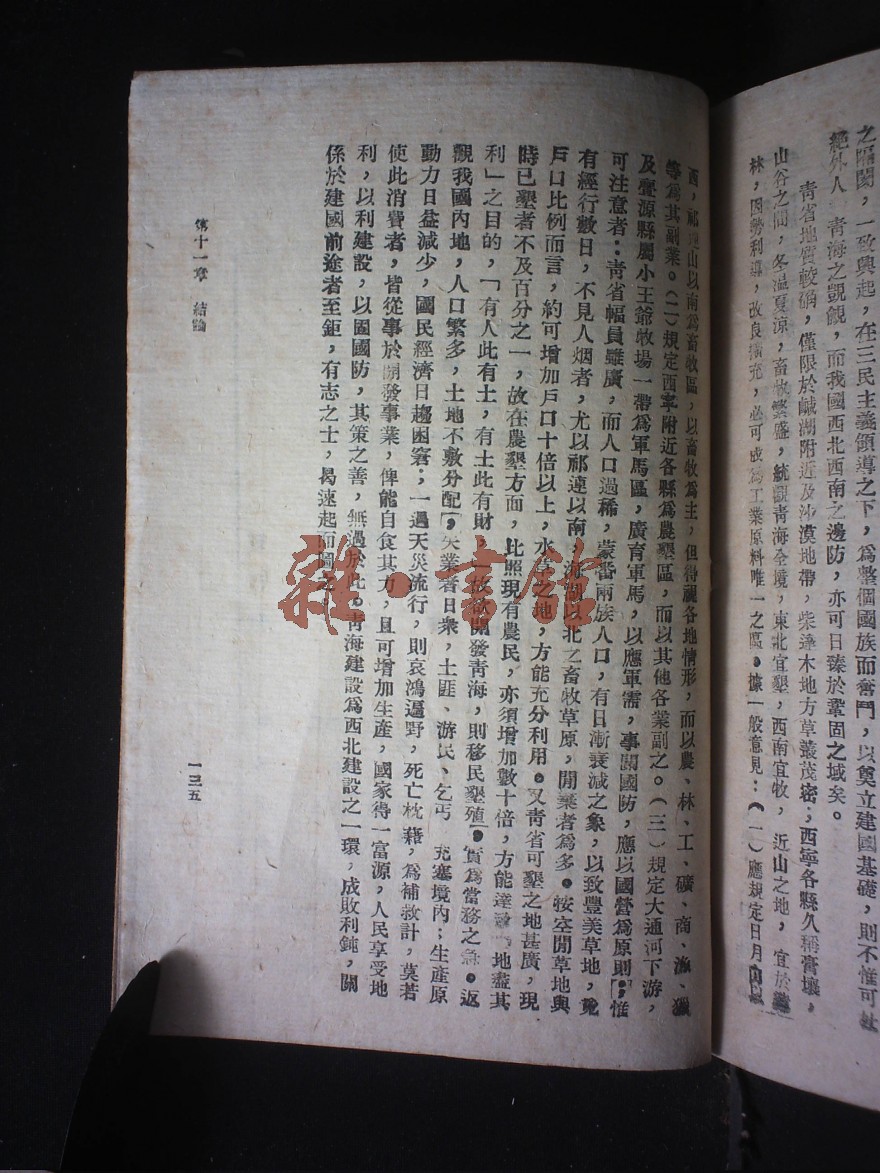 之隔閡，一致興起，在三民主義領導之下，為整個國族而奮鬥，以奠立建國基礎，則不惟可杜
絕外人　青海之覬覦，而我國西北西南之邊防，亦可日臻於鞏固之域矣。
青省地質較磽，僅限於鹹湖附近及沙漠地帶，柴達木地方草叢茂密；西寧各縣久稱膏壤，
山谷之間，冬温夏涼，畜牧繁盛，統觀青海全境，東北宜墾，西南宜牧，近山之地，宜於
林，因勢利導，改良擴充，必可成為工業原料唯一之區。據一般意見：（一）應規定日月山以
西，祁連山以南為畜牧區，以畜牧為主，但得視各地情形，而以農、林、工、礦、商、漁、獵
等為其副業。（二）規定西寧附近各縣為農墾區，而以其他各業副之。（三）規定大通河下游，
及亹源縣屬小王爺牧場一帶為軍馬區，廣育軍馬，以應軍需，事關國防，應以國營為原則；惟
可注意者：青省幅員雖廣，而人口過稀，蒙番兩族人口，有日漸衰減之象，以致豐美草地，竟
有經行數日，不見人烟者，尤以祁連以南，海湖以北之畜牧草原，閒棄者為多。按空閒草地與
戶口比例而言，約可增加戶口十倍以上，水草之地，方能充分利用。又青省可墾之地甚廣，現
時已墾者不及百分之一，故在農墾方面，比照現有農民，亦須增加數十倍，方能達　地盡其
利」之目的，「有人此有土，有土此有財，」故欲開發青海，則移民墾殖，實為當務之急。返
觀我國內地，人口繁多，土地不敷分配，失業者日衆，土匪、游民、乞丐　充塞境內；生產原
動力日益減少，國民經濟日趨困窘；一遇天災流行，則哀鴻遍野，死亡枕藉，為補救計，莫若
使此消費者，皆從事於開發事業，俾能自食其力，且可增加生產，國家得一富源，人民享受地
利，以利建設，以固國防，其策之善，無過於此。青海建設為西北建設之一環，成敗利鈍，關
係於建國前途者至鉅，有志之士，曷速起而圖之。
第十一章　結論
一三五
雜·書館